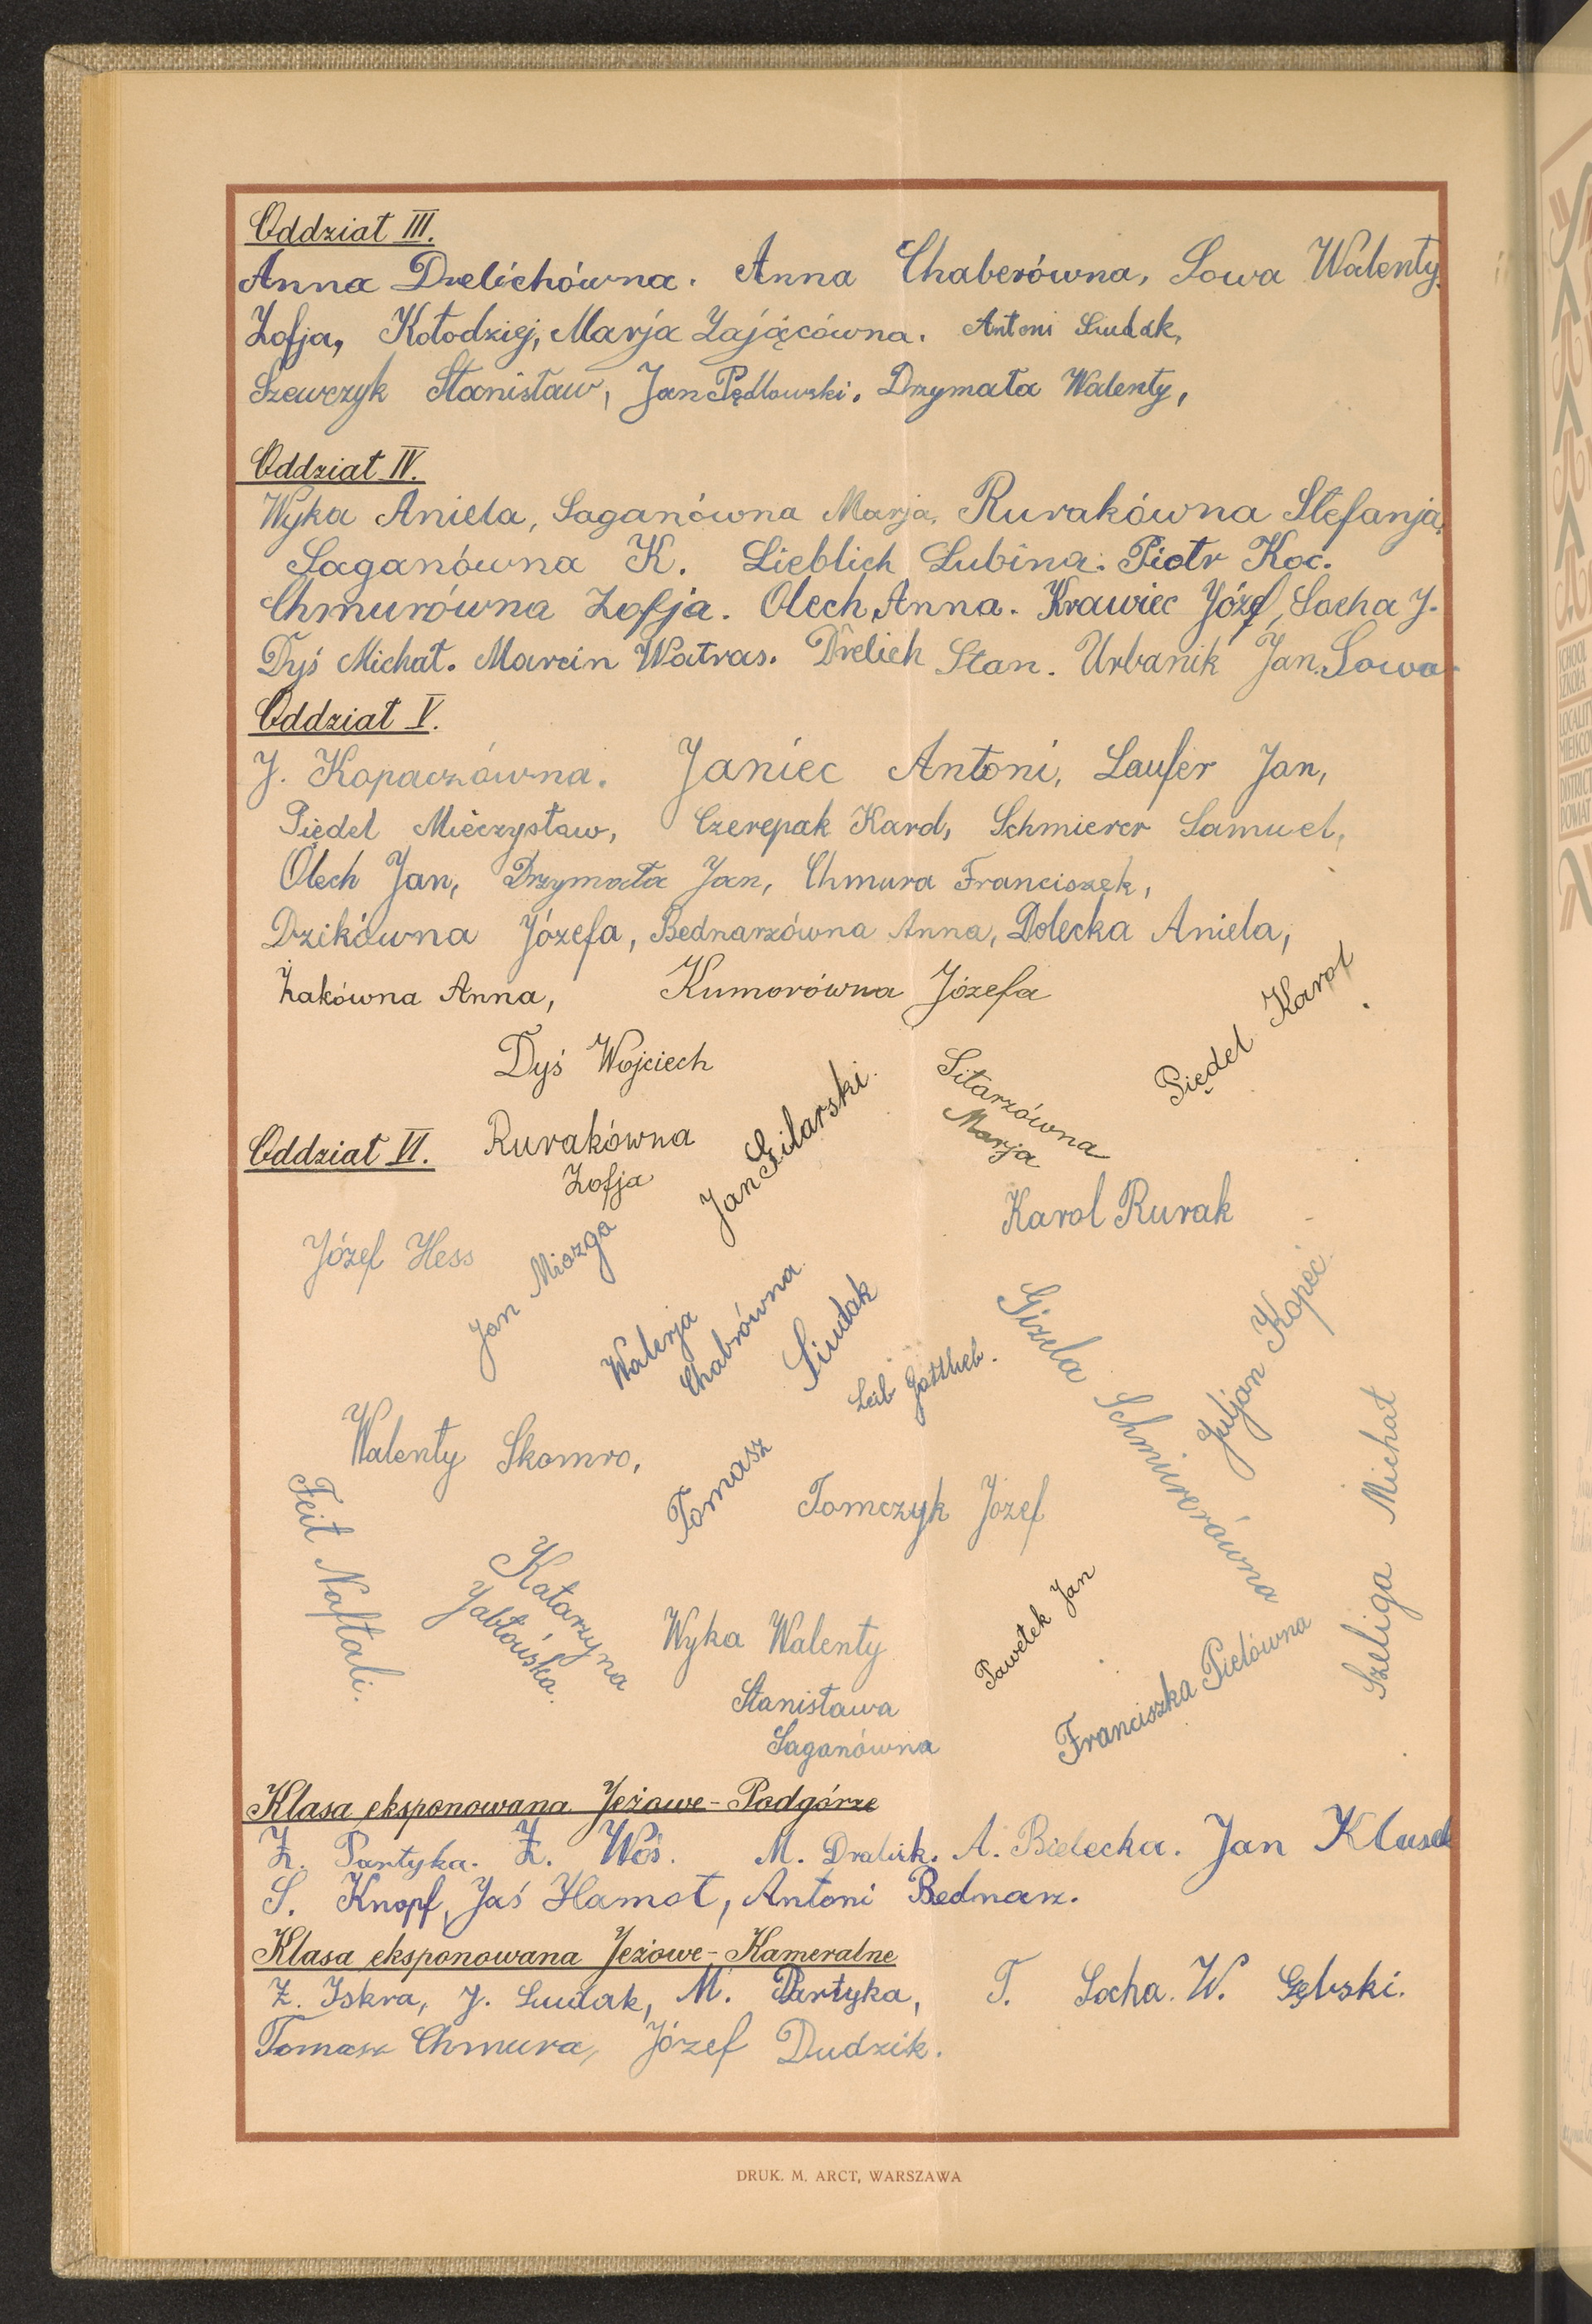 Oddział III.
Anna Drelichówna. Anna Chaberówna, Sowa Walenty,
Zofja, Kołodziej, Marja Zającówna. Antoni Siudak,
Szewczyk Stanisław, Jan Pędlowski. Drzymała Walenty,
Oddział IV.
Wyka Aniela, Saganówna Marja, Rurakówna Stefanja,
Saganówna K. Lieblich Lubina. Piotr Koc.
Chmurówna Zofja. Olech Anna. Krawiec Józef, Socha J.
Dyś Michał. Marcin Watras. Drelich Stan. Urbanik Jan. Sowa
Oddział V.
J. Kopaczówna. Janiec Antoni, Laufer Jan,
Piędel Mieczysław, Czerepak Karol, Schmierer Samuel,
Olech Jan, Drzymała Jan, Chmura Franciszek,
Dzikówna Józefa, Bednarzówna Anna, Dolecka Aniela,
Żakówna Anna, Kumorówna Józefa
Piędel Karol.
Dyś Wojciech
Oddział VI. Rurakówna
Zofja
Jan Gilarski.
Sitarzówna
Marja
Karol Rurak
Józef Hess
Jan Miazga
Walerja
Chabrówna.
Siudak
Tomasz
Leib Gottlieb.
Gizela Schmirerówna
Juljan Kopeć.
Walenty Skomro,
Tomczyk Józef
Szeliga Michał
Feit Naftali.
Katarzyna
Jabłońska.
Wyka Walenty
Pawełek Jan
Stanisława
Saganówna
Franciszka Pielówna
Klasa eksponowana Jeżowe-Podgórze
Z. Partyka. Z. Woś. M. Drabik. A. Bielecka. Jan Klusek
S. Knopf, Jaś Hamot, Antoni Bednarz.
Klasa eksponowana Jeżowe-Kameralne
Z. Iskra, J. Siudak, M. Partyka, T. Socha. W. Gębski.
Tomasz Chmura, Józef Dudzik.
DRUK. M. ARCT, WARSZAWA
SCHOOL
SZKOŁA